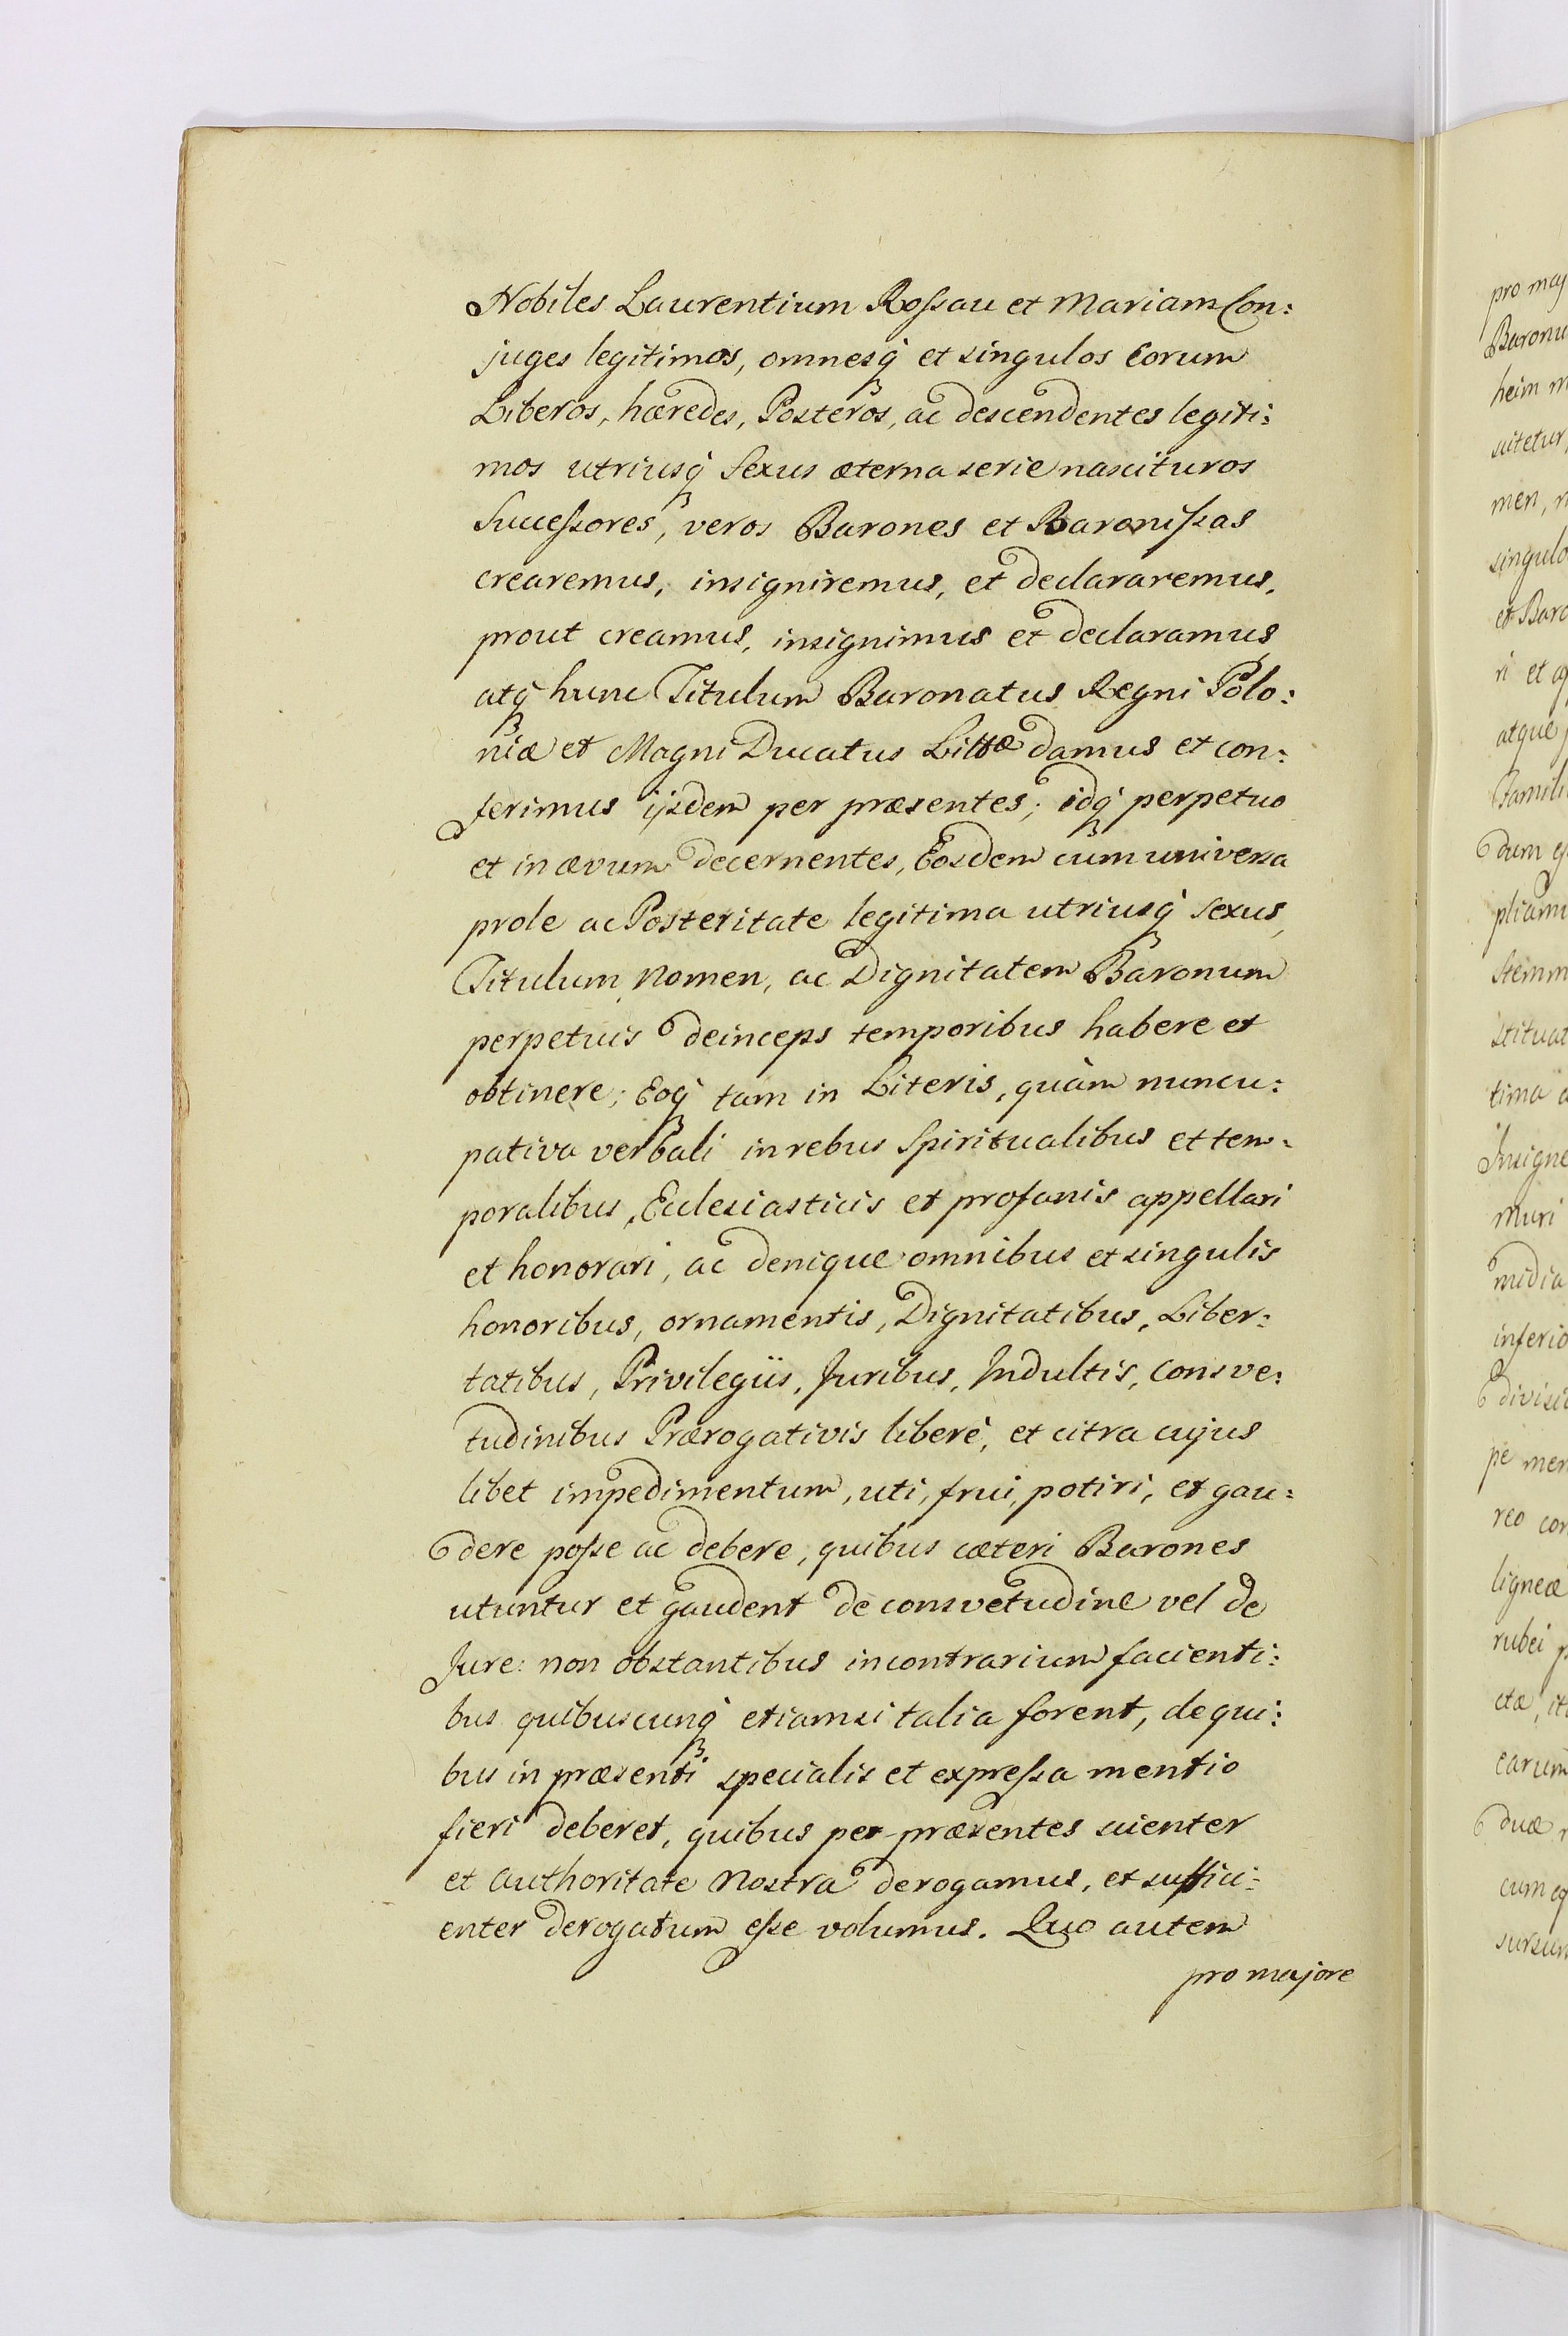 Nobiles Laurentium Roſsau et Mariam Con:
juges legitimos, omnesq́ et singulos Eorum
Liberos, hæredes, Posteros, ac descendentes legiti:
mos utriusq́ Sexus æterna serie nascituros
Succeſsores, veros Barones et Baroniſsas
crearemus, insigniremus, et declararemus,
prout creamus, insignimus et declaramus,
atq́ hunc Titulum Baronatus Regni Polo:
niæ et Magni Ducatus Littæ damus et con:
ferimus ijsdem per præsentes; idq́ perpetuo
et in ævum decernentes, Eosdem cum universa
prole ac Posteritate legitima utriusq́ Sexus,
Titulum, Nomen, ac Dignitatem Baronum
perpetuis deinceps temporibus habere et
obtinere; Eoq́ tam in Literis, quàm nuncu:
pativa verbali in rebus Spiritualibus et tem:
poralibus, Ecclesiasticis et profanis appellari
et honorari, ac denique omnibus et singulis
honoribus, ornamentis, Dignitatibus, Liber:
tatibus, Privilegiis, Juribus, Indultis, consve:
tudinibus Prærogativis liberè, et citra cujus
libet impedimentum, uti, frui, potiri, et gau:
dere poſse ac debere, quibus cæteri Barones
utuntur et gaudent de consvetudine vel de
Jure: non obstantibus in contrarium facienti:
bus quibuscunq́ etiamsi talia forent, de qui:
bus in præsenti specialis et expreſsa mentio
fieri deberet, quibus per præsentes scienter
et authoritate Nostra derogamus, et suffici:
enter derogatum eſse volumus. Quo autem
pro majore
pro maj
heim
men,
singulo
et Baro
ri et
atque
Famili
dum
pliam
Stemm
stituat
tima
Insigne
muri
midia
inferio
divisi
pe
reo
ligneæ
rubei
ctæ, it
earum
duæ
cum
sursum